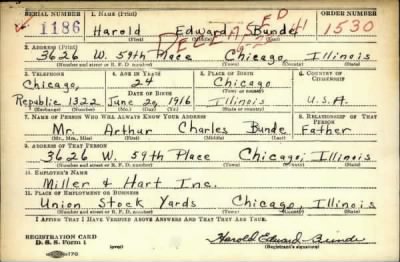 SERIAL NUMBER 1. NAME (Print) ORDER NUMBER
1186 Harold Edward Bunde 1530
RELEASED
2. ADDRESS (Print)
3626 W. 59th Place Chicago, Illinois
(Number and street or R. F. D. number) (Town) (County) (State)
3. TELEPHONE 4. AGE IN YEARS 5. PLACE OF BIRTH 6. COUNTRY OF CITIZENSHIP
Chicago, 24 Chicago
DATE OF BIRTH
Republic 1322 June 29, 1916 Illinois U.S.A.
(Exchange) (Number) (Mo.) (Day) (Yr.) (State or country)
7. NAME OF PERSON WHO WILL ALWAYS KNOW YOUR ADDRESS 8. RELATIONSHIP OF THAT PERSON
Mr. Arthur Charles Bunde Father
(Mr., Mrs., Miss) (First) (Middle) (Last)
9. ADDRESS OF THAT PERSON
3626 W. 59th Place Chicago, Illinois
(Number and street or R. F. D. number) (Town) (County) (State)
10. EMPLOYER'S NAME
Miller & Hart Inc.
11. PLACE OF EMPLOYMENT OR BUSINESS
Union Stock Yards Chicago, Illinois
(Number and street or R. F. D. number) (Town) (County) (State)
I AFFIRM THAT I HAVE VERIFIED ABOVE ANSWERS AND THAT THEY ARE TRUE.
REGISTRATION CARD
D. S. S. Form 1 (over)
Harold Edward Bunde
(Registrant's signature)